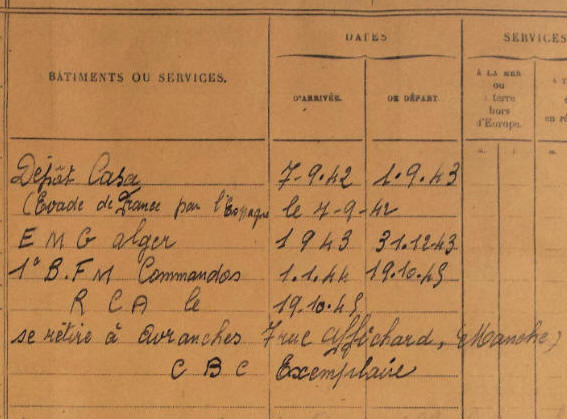 DATES SERVICES
BÂTIMENTS OU SERVICES.
D'ARRIVÉE. DE DÉPART.
À LA MER
ou
à terre
hors
d'Europe.
Dépôt Casa 7-9.42 1.9.43
(Evadé de France par l'Espagne le 7-9-42
E M G alger 1943 31.12.43
1° B.F.M Commandos 1.1.44 19.10.45
R C A le 19.10.45
se retire à avranches 7 rue Affichard, Manche)
C B C Exemplaire